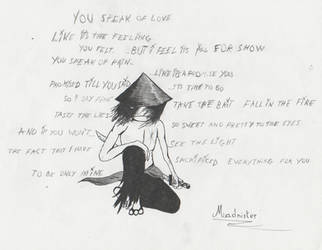 YOU SPEAK OF LOVE
LIKE IT'S THE FEELING
YOU FELT.. BUT I FEEL IT'S ALL FOR SHOW
YOU SPEAK OF PAIN..
LIKE IT'S A PROMISE YOU
PROMISED TILL YOU SAID ITS TIME TO GO
SO I SAY FINE TAKE THE BAIT FALL IN THE FIRE
TASTE THE LIES SO SWEET AND PRETTY TO THE EYES
AND IF YOU WON'T SEE THE LIGHT
THE FACT THAT I HAVE SACRIFICED EVERYTHING FOR YOU
TO BE ONLY MINE